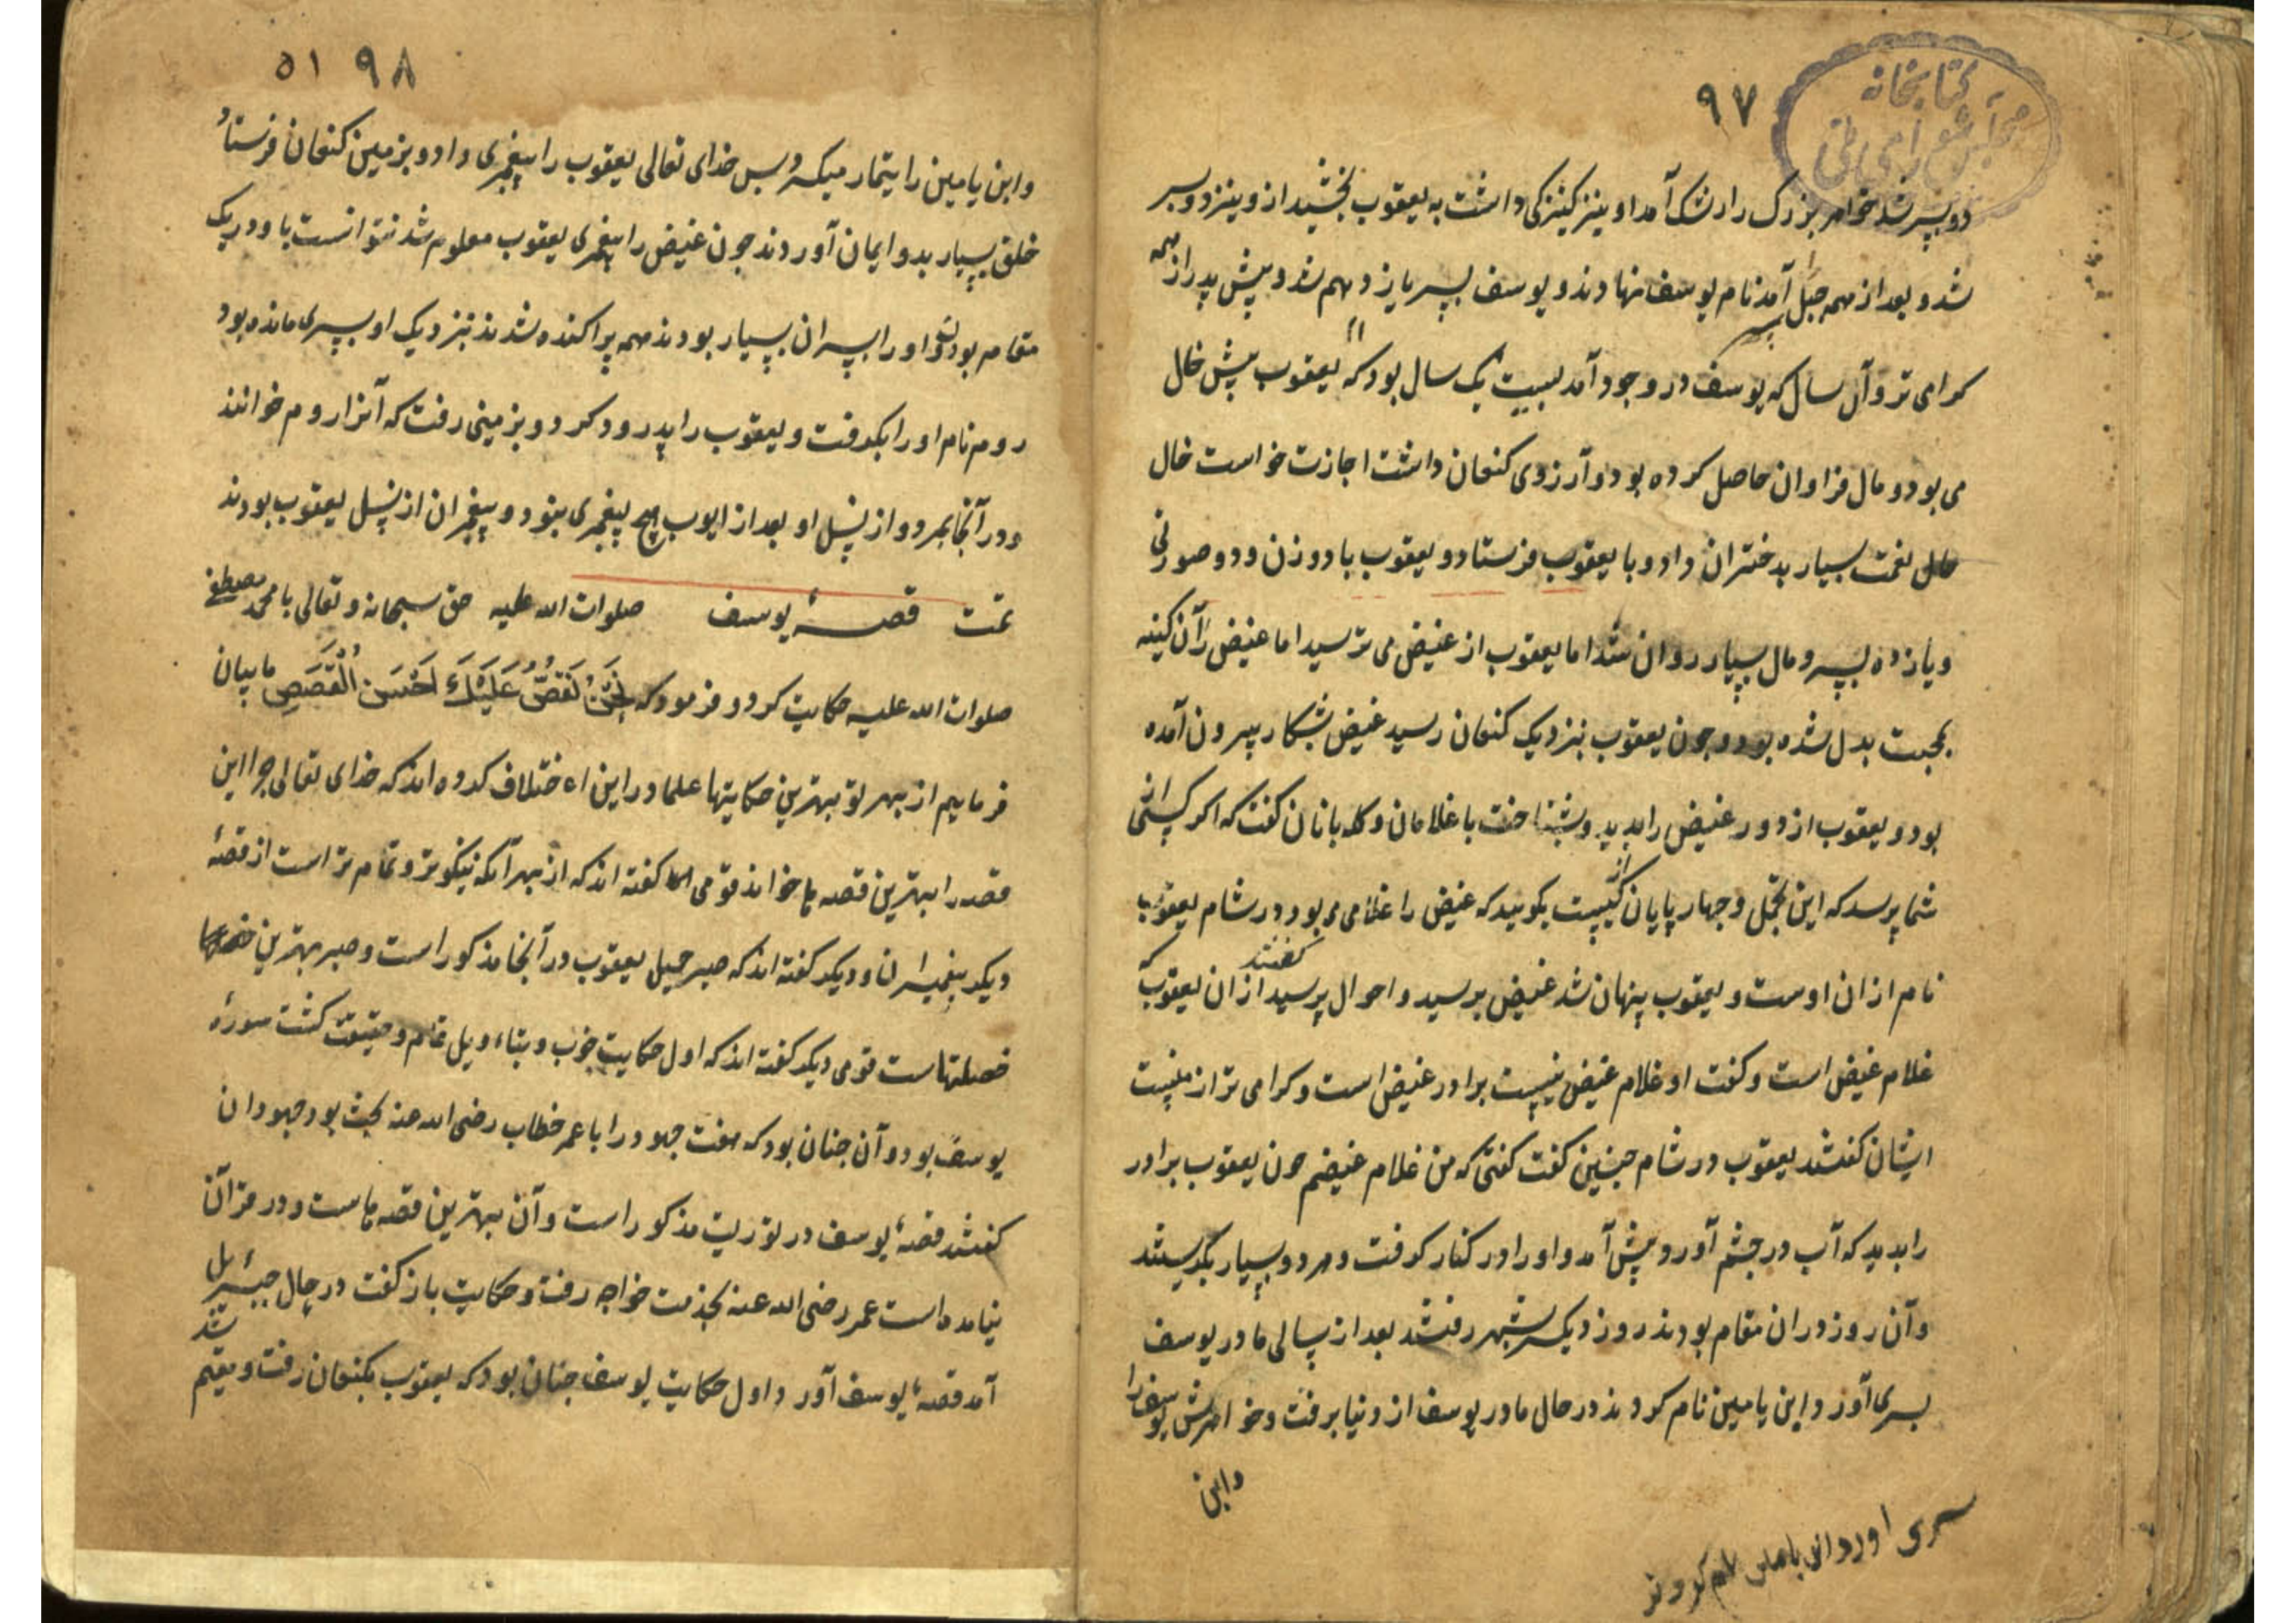 ۹۷
کتابخانه
مجلس شورای ملی
دو پسر شد خواهر بزرک را رشک آمد او نیز کنیزکی داشت به یعقوب بخشید از و نیز دو پسر
شد و بعد از همه حبل آمد نام یوسف نهادند و یوسف پسر یازدهم شد و پیش پدر از همه
کرامی تر و آن سال که یوسف در وجود آمد بیست یک سال بود که یعقوب پیش خال
می بود و مال فراوان حاصل کرده بود و آرزوی کنعان داشت اجازت خواست خال
خال نعمت بسیار بدختران داد و با یعقوب فرستاد و یعقوب با دو زن و دو صورتی
و یازده پسر و مال بسیار روان شد اما یعقوب از عیض می ترسید اما عیض را آن کینه
بمحبت بدل شده بود و چون یعقوب بنزدیک کنعان رسید عیض بشکار بیرون آمده
بود و یعقوب از دور عیض را بدید و بشناخت با غلامان و کله بانان کفت که اکر کسی از
شما پرسد که این تجمل و چهار پایان از کیست بکویید که عیض را غلامی می بود در شام یعقوب
نام از ان اوست و یعقوب پنهان شد عیض برسید و احوال پرسید کفتند از ان یعقوب که
غلام عیض است و کفت او غلام عیض نیست برادر عیض است و کرامی تر از منست
ایشان کفتند یعقوب در شام چنین کفت کفتی که من غلام عیضم چون یعقوب برادر
را بدید که آب در چشم آورد و پیش آمد و او را در کنار کرفت و هر دو بسیار بکریستند
و آن روز در ان مقام بودند روز دیکر بشهر رفتند بعد از سالی مادر یوسف
پسری آورد و ابن یامین نام کردند در حال مادر یوسف از دنیا برفت و خواهرش یوسف را
و ابن
پسری اورد ابن یامین نام کردند
۹۸ ۵۱
و ابن یامین را تیمار میکرد پس خدای تعالی یعقوب را پیغمبری داد و بزمین کنعان فرستاد
خلق بسیار بدو ایمان آوردند چون عیض را پیغمبری یعقوب معلوم شد نتوانست با او در یک
مقام بودن و او را پسران بسیار بودند همه پراکنده شدند بنزدیک او پسری مانده بود
روم نام او را بکرفت و یعقوب را پدرود کرد و بزمینی رفت که آنرا روم خوانند
و در آنجا بمرد و از نسل او بعد از ایوب هیچ پیغمبری نبود و پیغمبران از نسل یعقوب بودند
تمت قصهٔ یوسف صلوات الله علیه حق سبحانه و تعالی با محمد مصطفی
صلوات الله علیه حکایت کرد و فرمود که نَحْنُ نَقُصُّ عَلَيْكَ اَحْسَنَ الْقَصَصِ ما بیان
فرماییم از بهر تو بهترین حکایتها علما در این اختلاف کرده اند که خدای تعالی چرا این
قصه را بهترین قصه ها خواند قومی کفته اند که از بهر آنکه نیکوتر و تمام تر است از قصهٔ
دیکر پیغمبران و دیکر کفته اند که صبر جمیل یعقوب در آنجا مذکور است و صبر بهترین
خصلتهاست قومی دیکر کفته اند که اول حکایت خوب و بتاءویل تمام و حقیقت کشت سورهٔ
یوسف بود و آن چنان بود که هفت جهود را با عمر خطاب رضی الله عنه بحث بود جهودان
کفتند قصهٔ یوسف در توریت مذکور است و آن بهترین قصه هاست و در قرآن
نیامده است عمر رضی الله عنه بخدمت خواجه رفت و حکایت باز کفت در حال جبرئیل
آمد قصهٔ یوسف آورد و اول حکایت یوسف چنان بود که یعقوب بکنعان رفت و مقیم شد